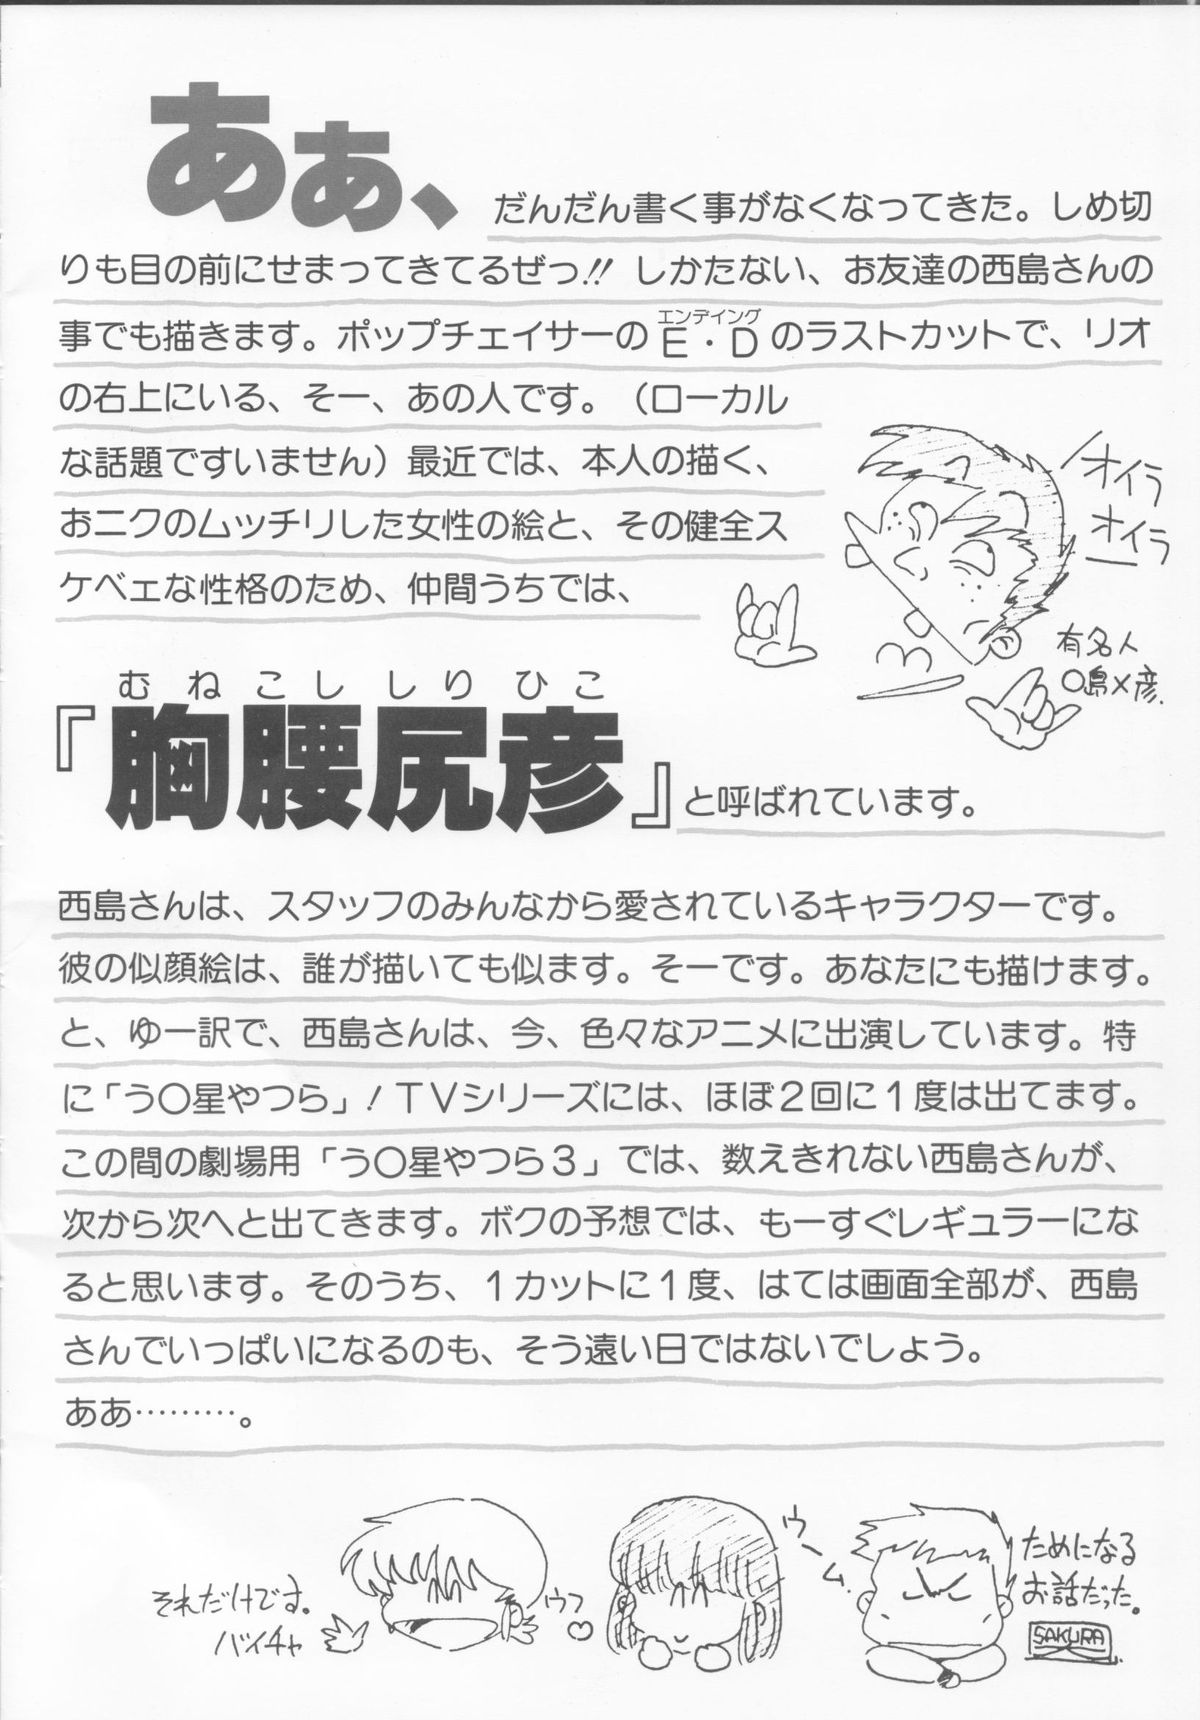 ああ、だんだん書く事がなくなってきた。しめ切
りも目の前にせまってきてるぜっ!! しかたない、お友達の西島さんの
事でも描きます。ポップチェイサーのE・Dのラストカットで、リオ
エンディング
の右上にいる、そー、あの人です。(ローカル
な話題ですいません)最近では、本人の描く、
おニクのムッチリした女性の絵と、その健全ス
ケベェな性格のため、仲間うちでは、
オイラ
オイラ
有名人
〇島×彦.
むねこししりひこ
『胸腰尻彦』と呼ばれています。
西島さんは、スタッフのみんなから愛されているキャラクターです。
彼の似顔絵は、誰が描いても似ます。そーです。あなたにも描けます。
と、ゆー訳で、西島さんは、今、色々なアニメに出演しています。特
に「う〇星やつら」! TVシリーズには、ほぼ2回に1度は出てます。
この間の劇場用「う〇星やつら3」では、数えきれない西島さんが、
次から次へと出てきます。ボクの予想では、もーすぐレギュラーにな
ると思います。そのうち、1カットに1度、はては画面全部が、西島
さんでいっぱいになるのも、そう遠い日ではないでしょう。
ああ………。
それだけです。
バイチャ
ウフ♡
ウーム.
ためになる
お話だった。
SAKURA